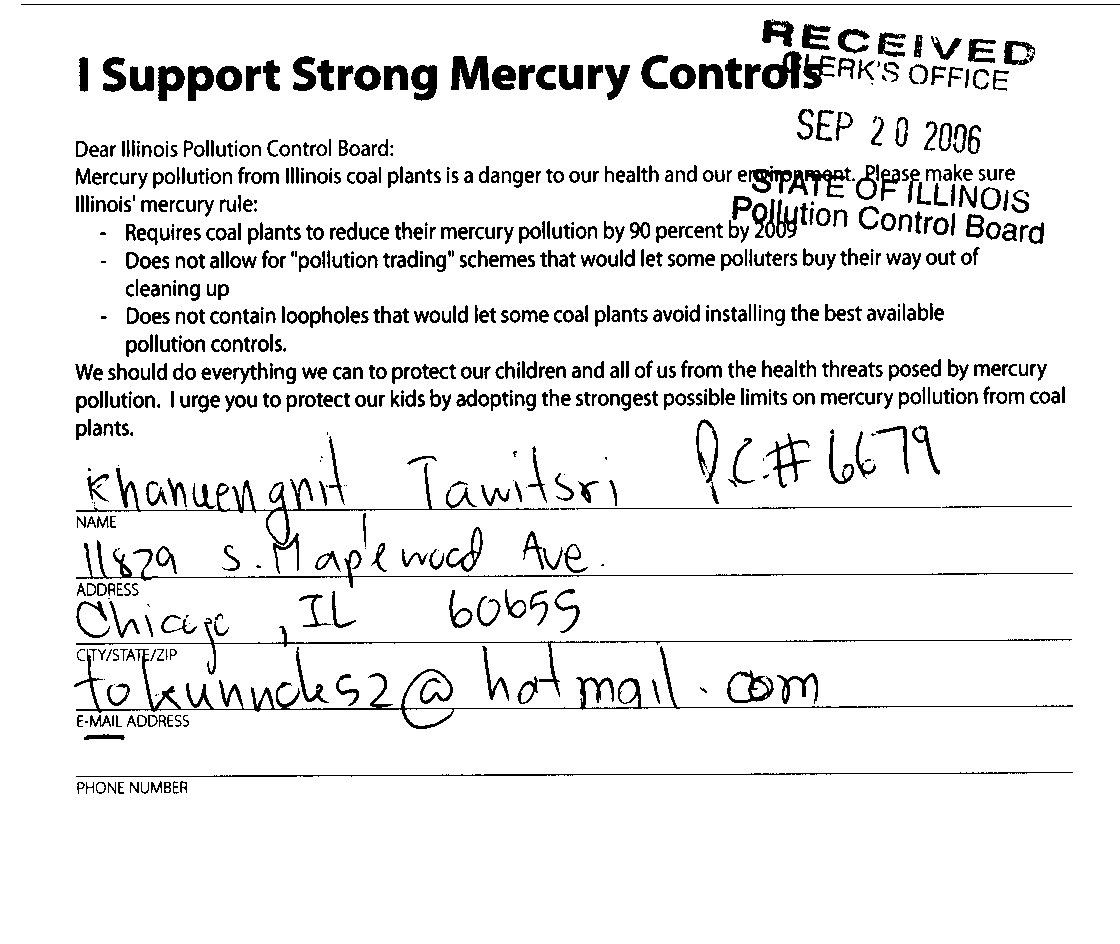 RECEIVED
CLERK'S OFFICE
I Support Strong Mercury Controls
SEP 20 2006
Dear Illinois Pollution Control Board:
Mercury pollution from Illinois coal plants is a danger to our health and our environment. Please make sure
STATE OF ILLINOIS
Illinois' mercury rule:
Pollution Control Board
- Requires coal plants to reduce their mercury pollution by 90 percent by 2009
- Does not allow for "pollution trading" schemes that would let some polluters buy their way out of
cleaning up
- Does not contain loopholes that would let some coal plants avoid installing the best available
pollution controls.
We should do everything we can to protect our children and all of us from the health threats posed by mercury
pollution. I urge you to protect our kids by adopting the strongest possible limits on mercury pollution from coal
plants.
Khanuengnit Tawitsri P.C.# 6679
NAME
11829 S. Maplewood Ave.
ADDRESS
Chicago, IL 60655
CITY/STATE/ZIP
@hotmail.com
E-MAIL ADDRESS
PHONE NUMBER